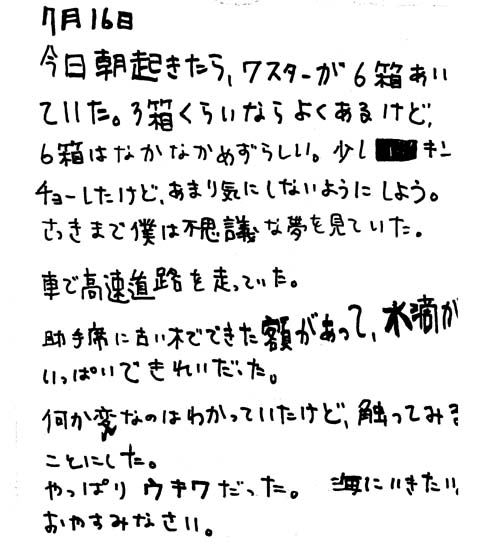 7月16日
今日朝起きたら、ワスターが6箱あい
ていた。3箱くらいならよくあるけど、
6箱はなかなかめずらしい。少し キン
チョーしたけど、あまり気にしないようにしよう。
さっきまで僕は不思議な夢を見ていた。
車で高速道路を走っていた。
助手席に古い木でできた額があって、水滴が
いっぱいできれいだった。
何か変なのはわかっていたけど、触ってみる
ことにした。
やっぱりウキワだった。 海にいきたい。
おやすみなさい。